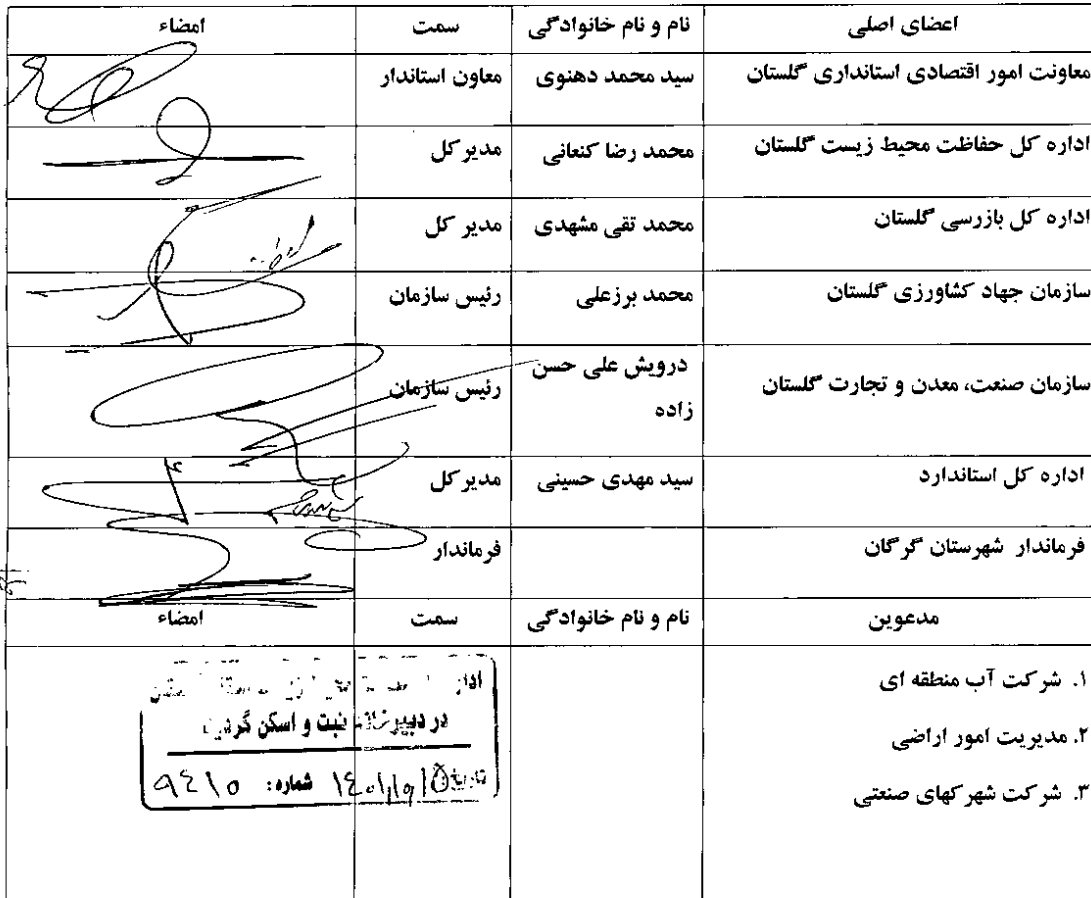 اعضای اصلی نام و نام خانوادگی سمت امضاء
معاونت امور اقتصادی استانداری گلستان سید محمد دهنوی معاون استاندار
اداره کل حفاظت محیط زیست گلستان محمد رضا کنعانی مدیر کل
اداره کل بازرسی گلستان محمد تقی مشهدی مدیر کل
سازمان جهاد کشاورزی گلستان محمد برزعلی رئیس سازمان
سازمان صنعت، معدن و تجارت گلستان درویش علی حسن رئیس سازمان
زاده
اداره کل استاندارد سید مهدی حسینی مدیر کل
فرماندار شهرستان گرگان فرماندار
مدعوین نام و نام خانوادگی سمت امضاء
۱. شرکت آب منطقه ای
۲. مدیریت امور اراضی
۳. شرکت شهرکهای صنعتی
در دبیرخانه ثبت و اسکن گردید
شماره: ۹۴۱۰